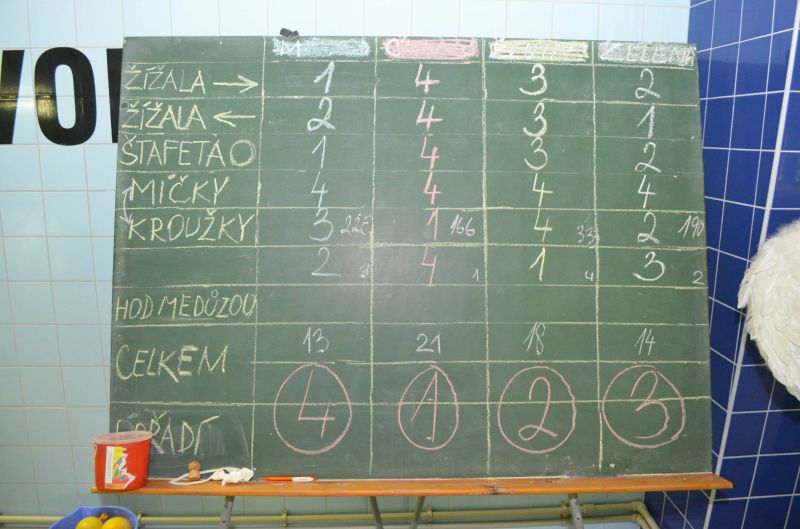 ŽÍŽALA → 1 4 3 2
ŽÍŽALA ← 2 4 3 1
ŠTAFETA O 1 4 3 2
MÍČKY 4 4 4 4
KROUŽKY 3 1 166 4 333 2 190
2 3 4 1 1 4 3 2
HOD MEDŮZOU
CELKEM 13 21 18 14
POŘADÍ 4 1 2 3